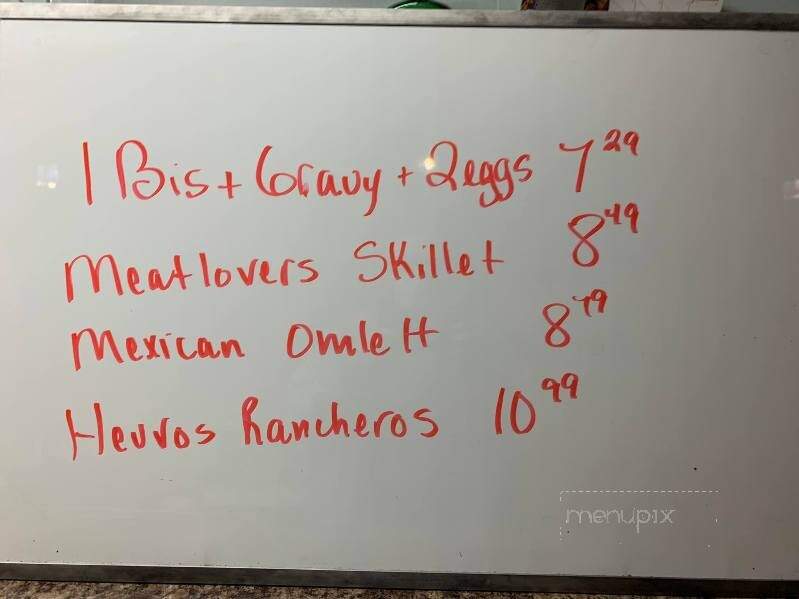 1 Bis + Gravy + 2eggs 7 29
Meatlovers Skillet 8 49
Mexican Omlett 8 79
Heuvos Rancheros 10 99
menupix